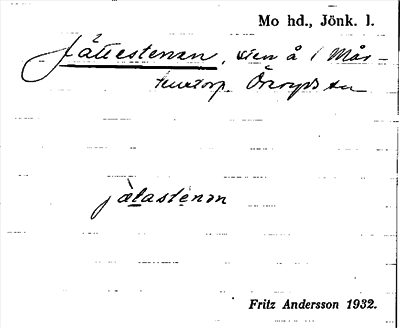 Mo hd., Jönk. l.
Jättestenan, sten å 1 Mår-
tenstorp. Öreryds sn
jätastenan
Fritz Andersson 1932.